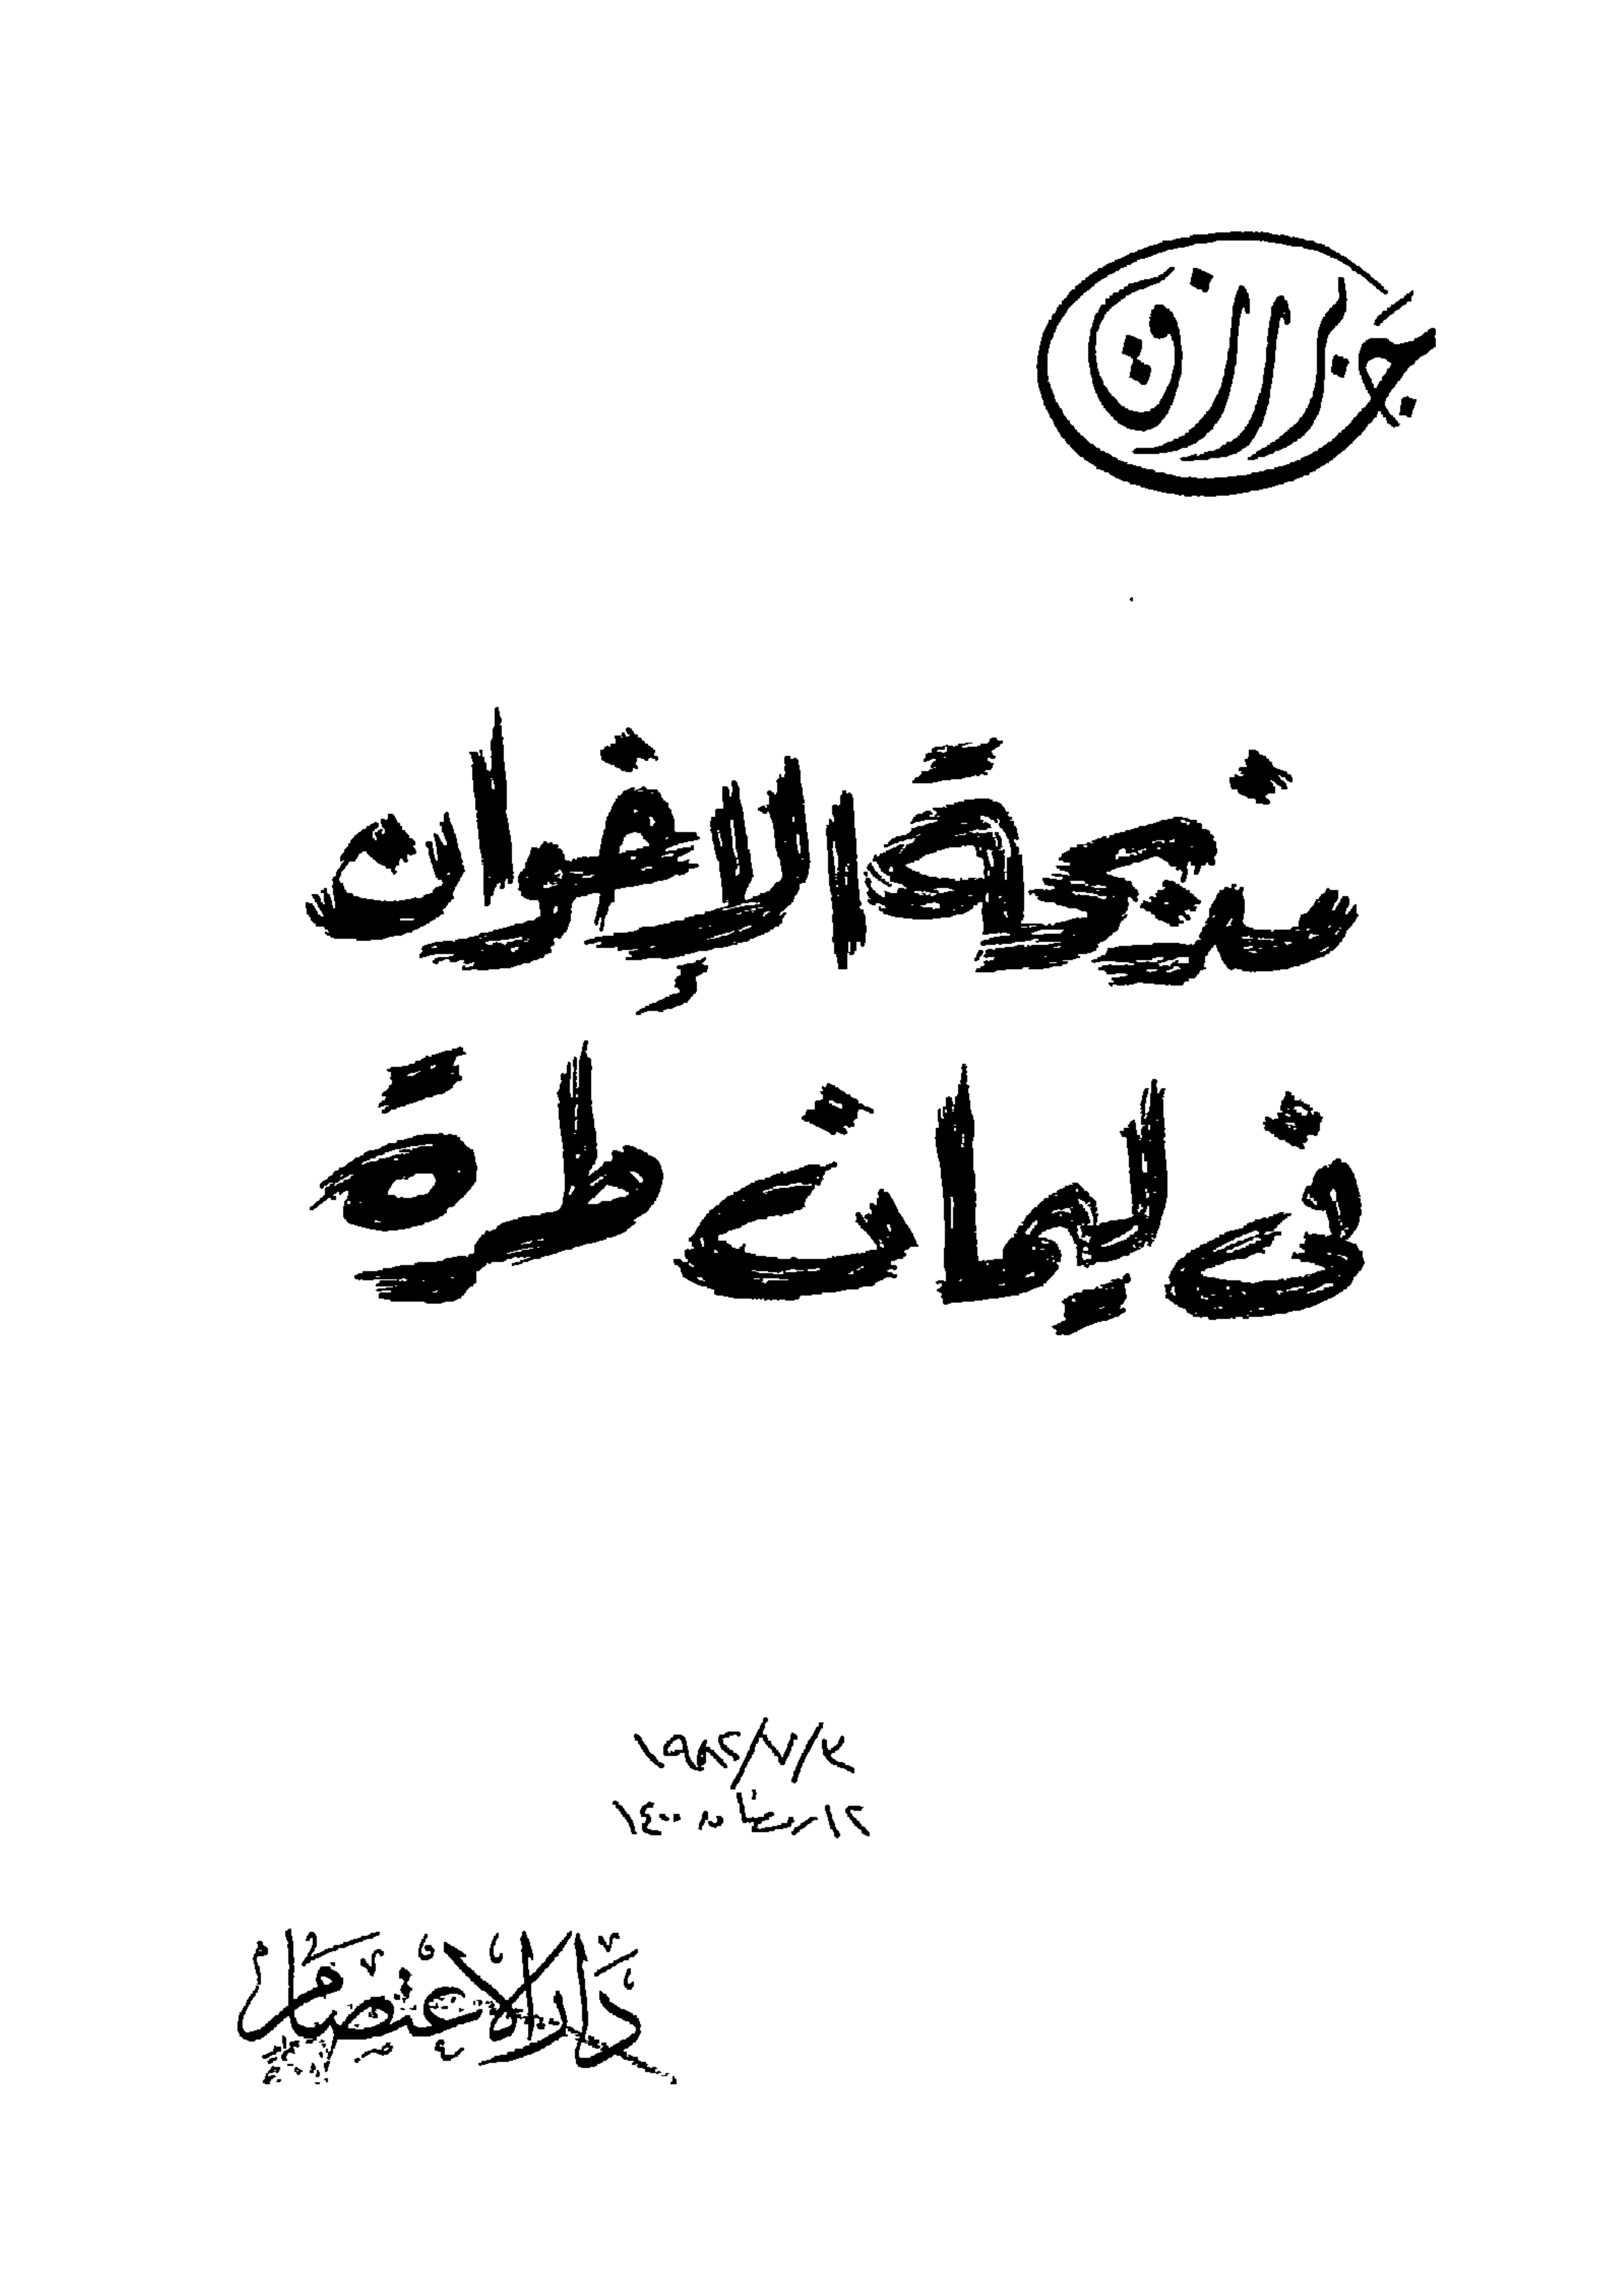 جابر رزق
مذبحة الإخوان
فى ليمان طرة
٤/٧/١٩٨٢
١٢ رمضان
دار الاعتصام